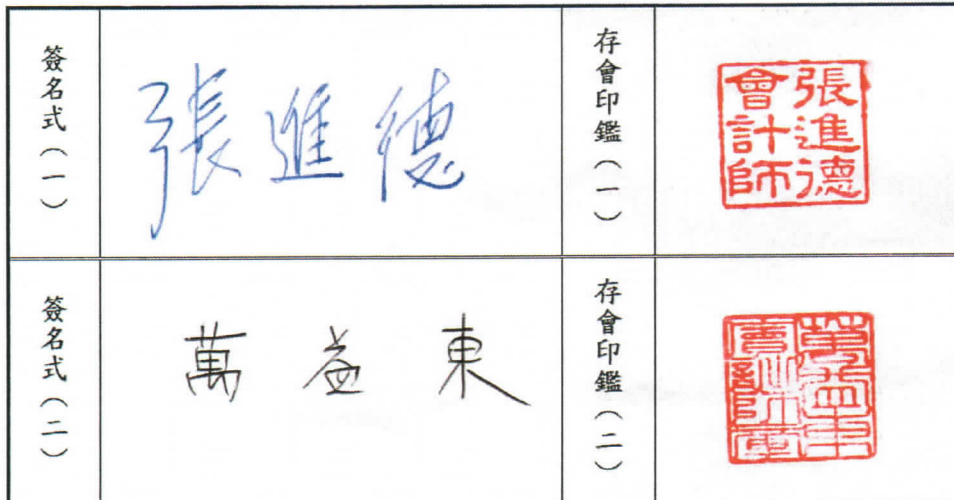 簽名式(一)
張進德
存會印鑑(一)
張進德
會計師
簽名式(二)
萬益東
存會印鑑(二)
萬益東
會計師章